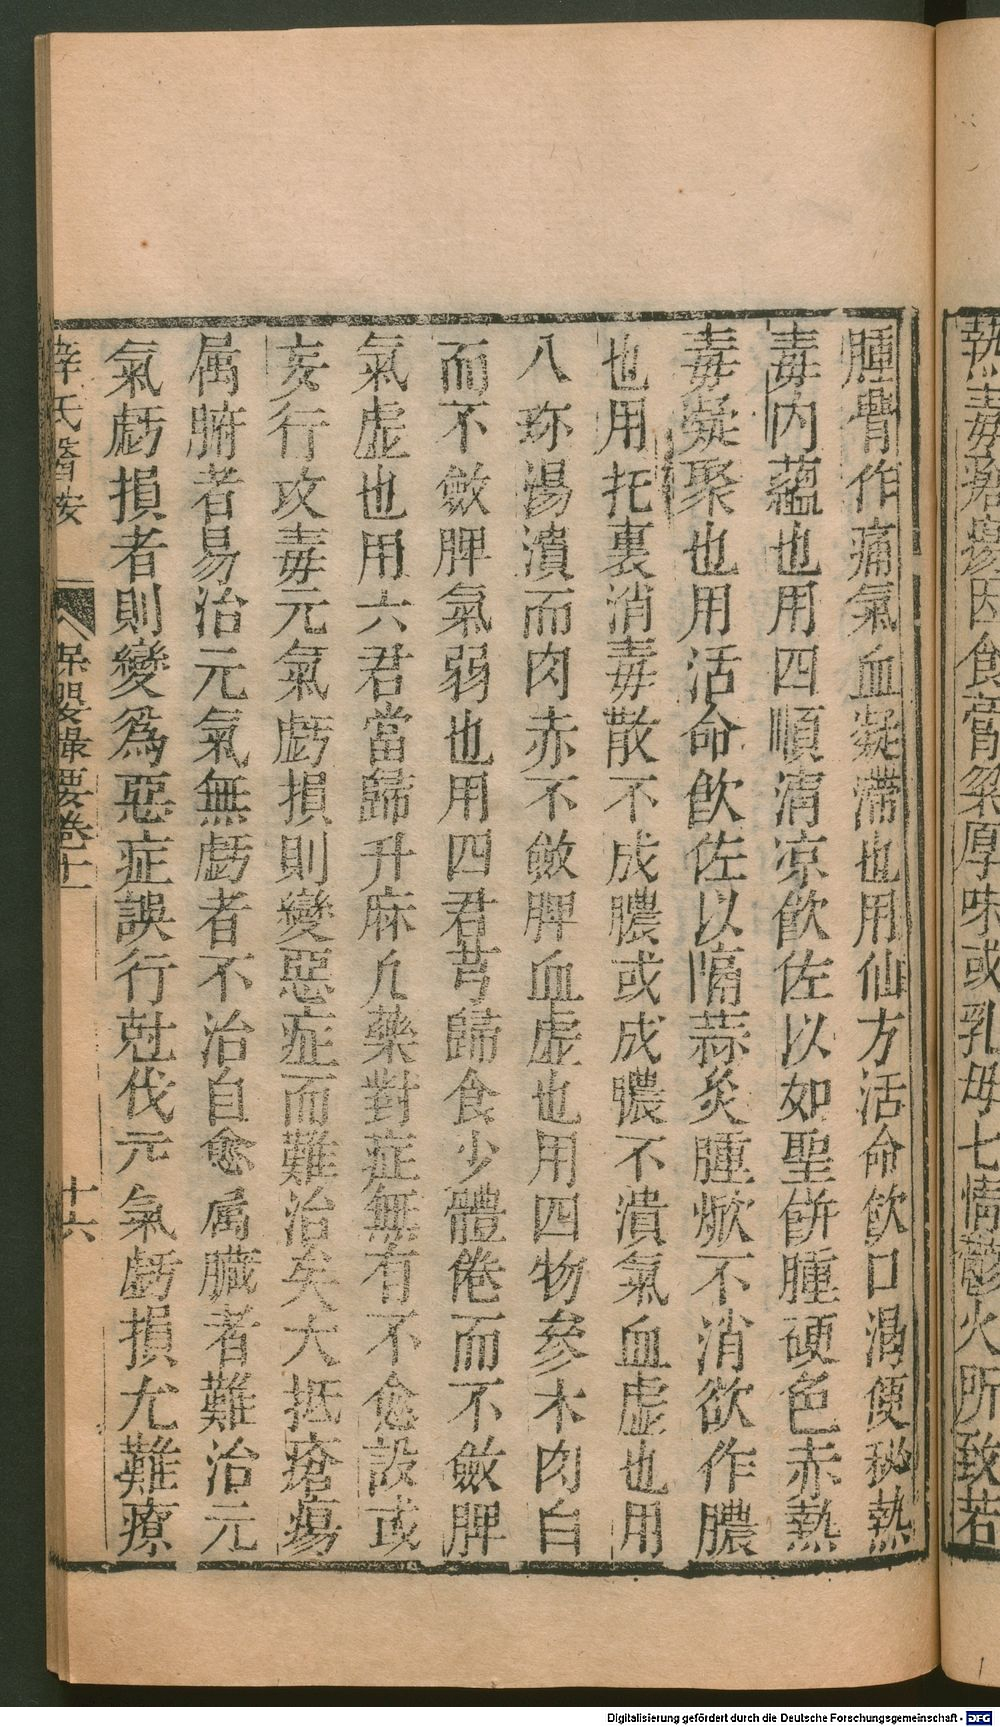 熱毒瘡瘍因食膏粱厚味或乳母七情鬱火所致若
腫脅作痛氣血凝滯也用仙方活命飲口渴便秘熱
毒內蘊也用四順清凉飲佐以如聖餅腫硬色赤熱
毒凝聚也用活命飲佐以隔蒜灸腫焮不消欲作膿
也用托裏消毒散不成膿或成膿不潰氣血虛也用
八珎湯潰而肉赤不斂脾血虛也用四物參木肉白
而不斂脾氣弱也用四君芎歸食少體倦而不斂脾
氣虛也用六君當歸升麻凢藥對症無有不愈設或
妄行攻毒元氣虧損則變惡症而難治矣大抵瘡瘍
属腑者易治元氣無虧者不治自愈属臟者難治元
氣虧損者則變為惡症誤行尅伐元氣虧損尤難療
薛氏醫按 保嬰撮要卷十一 十六
Digitalisierung gefördert durch die Deutsche Forschungsgemeinschaft - DFG